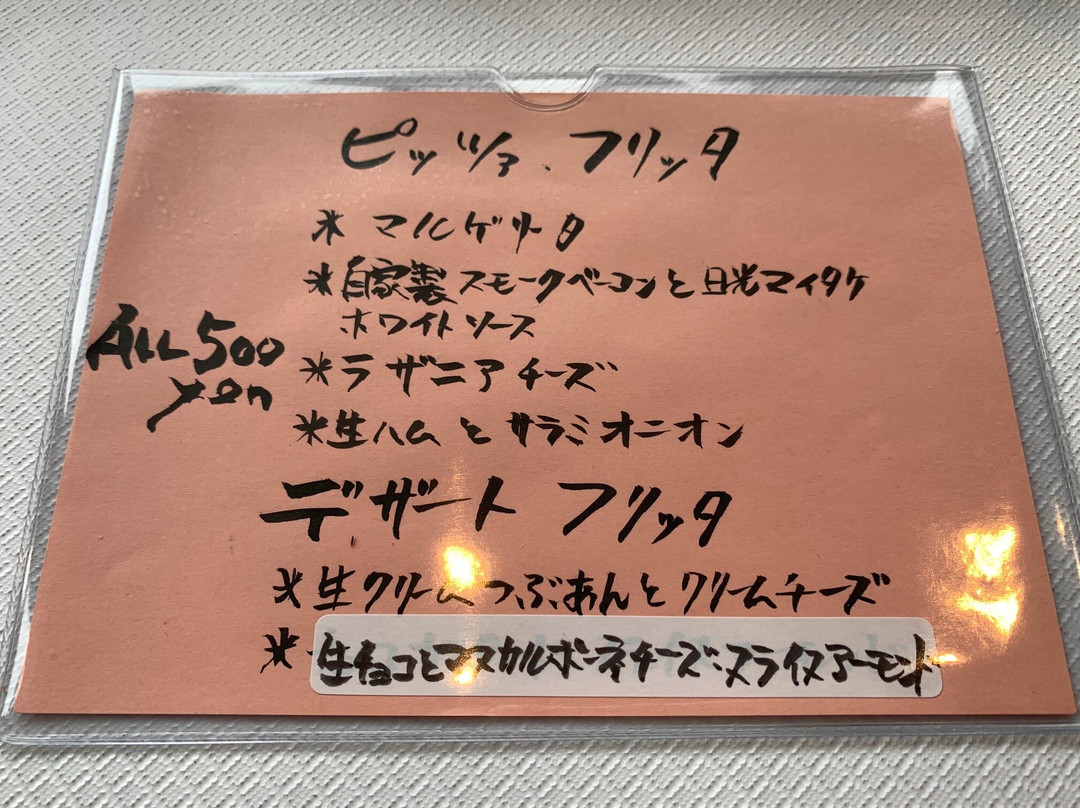 ピッツァ、フリッタ
* マルゲリータ
* 自家製スモークベーコンと日光マイタケ
ホワイトソース
ALL 500
yen
* ラザニアチーズ
* 生ハムとサラミオニオン
デザート フリッタ
* 生クリームつぶあんとクリームチーズ
* 生チョコとマスカルポーネチーズ:スライスアーモンド